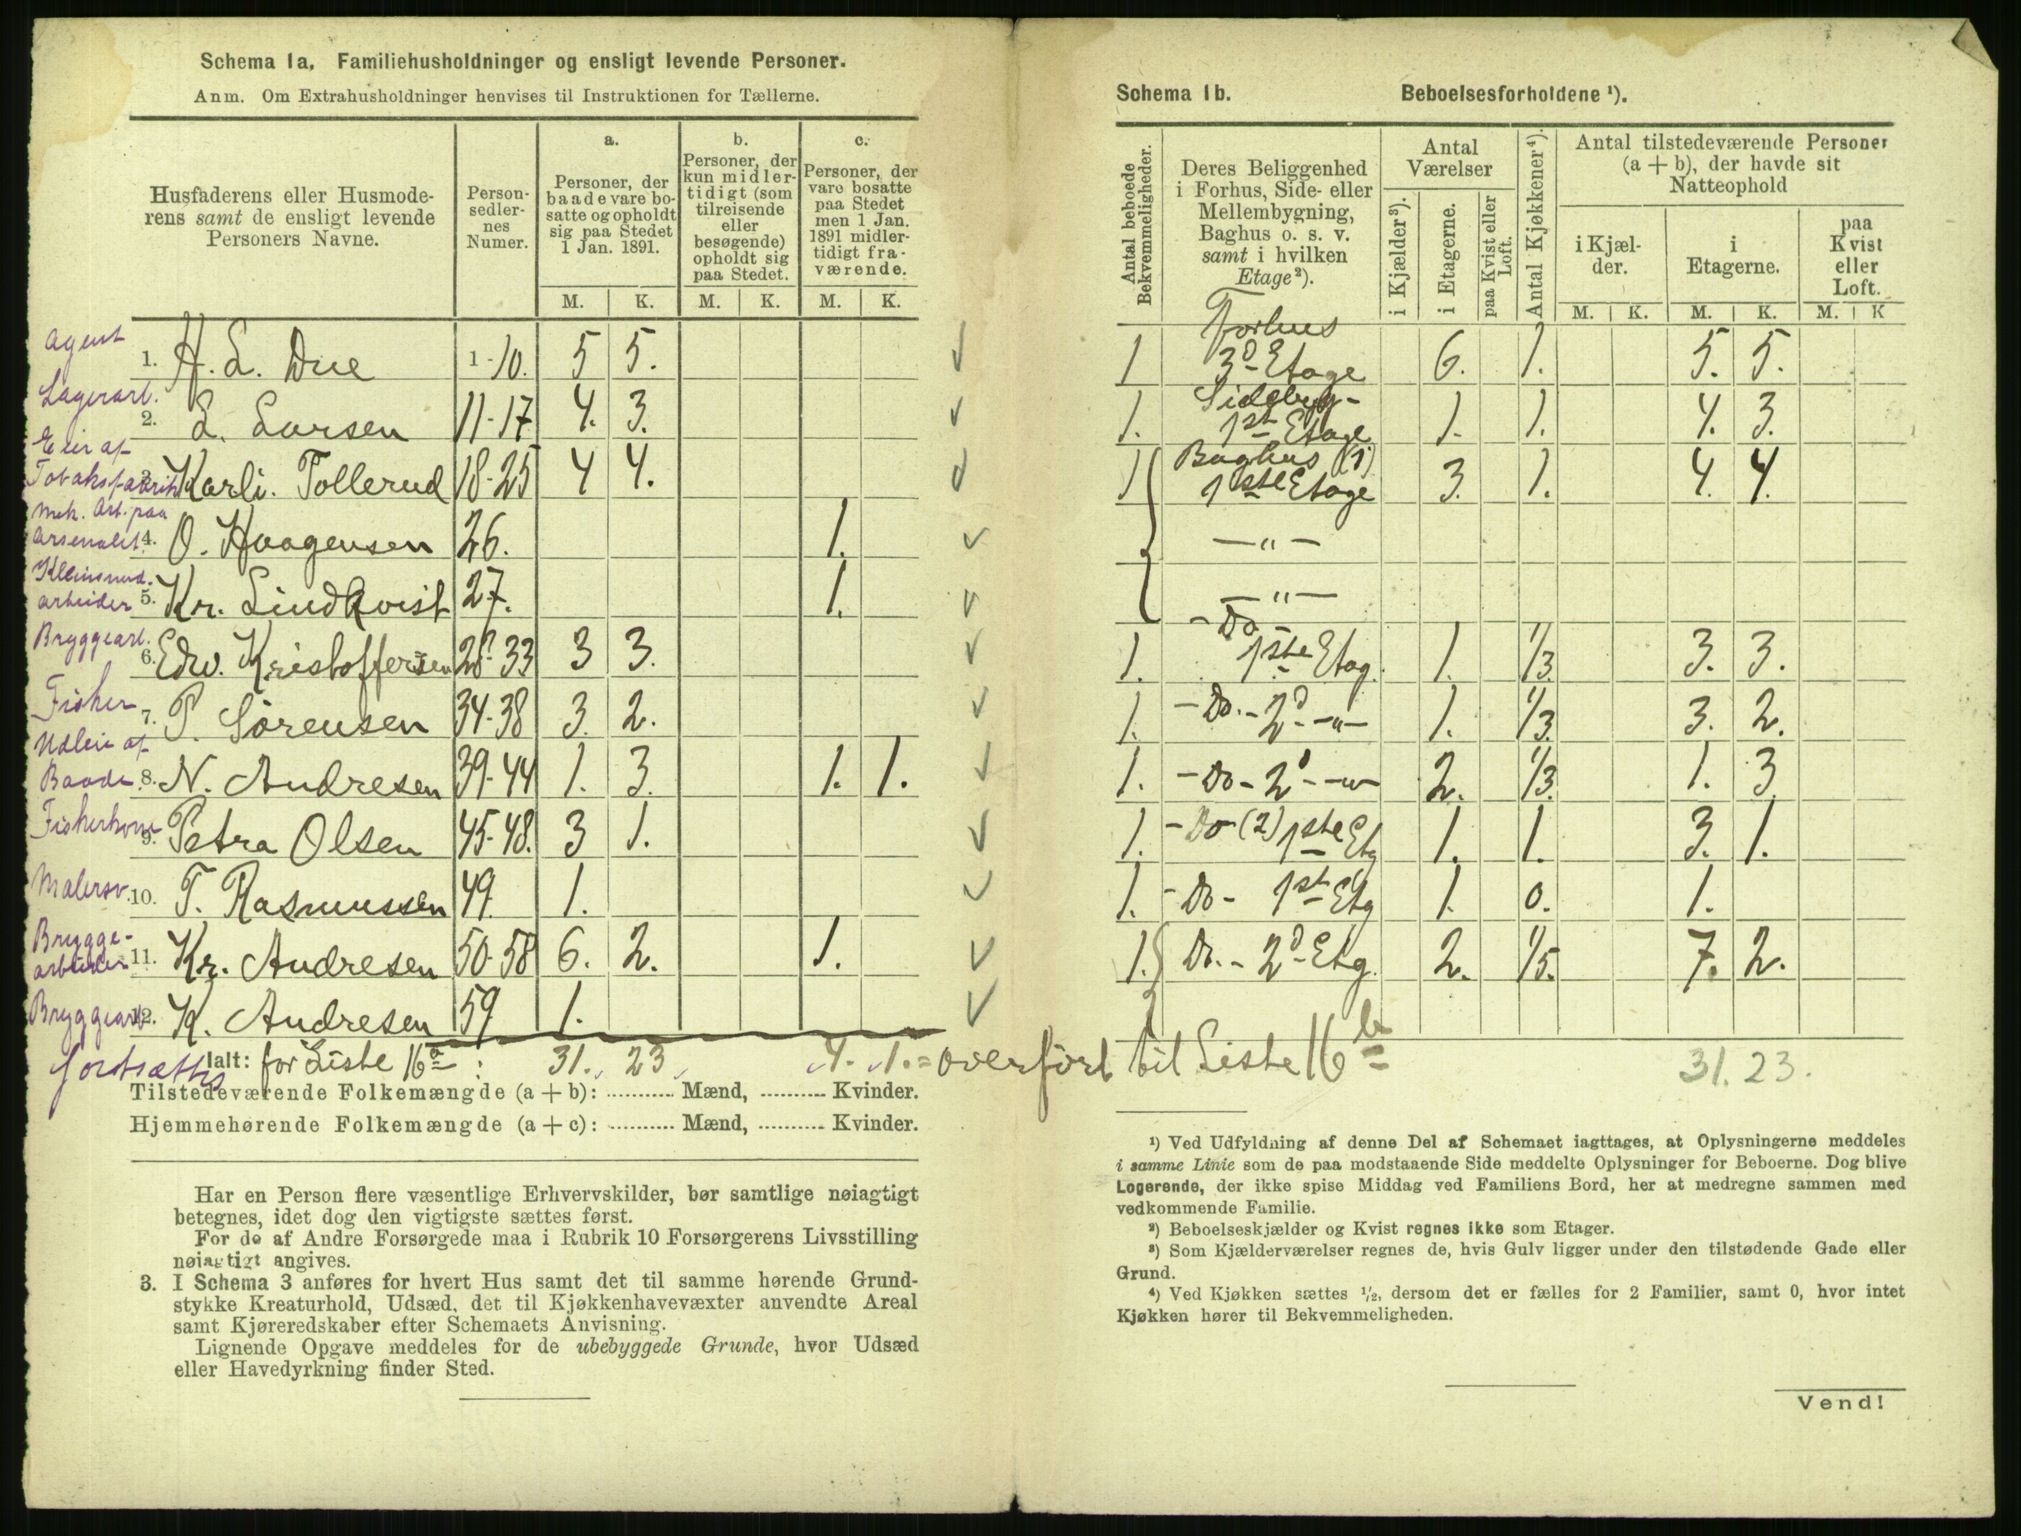 Schema 1a. Familiehusholdninger og ensligt levende Personer.
Anm. Om Extrahusholdninger henvises til Instruktionen for Tællerne.
Husfaderens eller Husmoderens samt de ensligt levende Personers Navne.
Person-sedlernes Numer.
a. Personer, der baade vare bosatte og opholdt sig paa Stedet 1 Jan. 1891.
b. Personer, der kun midlertidigt (som tilreisende eller besøgende) opholdt sig paa Stedet.
c. Personer, der vare bosatte paa Stedet men 1 Jan. 1891 midlertidigt fraværende.
M. K. M. K. M. K.
Agent
1. H. L. Due 1-10. 5 5.
Lagerarb.
2. L. Larsen 11-17 4. 3.
Eier af Tobaksfabrik
3. Karli. Tollerud 18-25 4 4.
Mek. Arb. paa Arsenalet
4. O. Haagensen 26. 1.
Kleinsmed. arbeider
5. Kr. Lindkvist 27. 1.
Bryggearb.
6. Edv. Kristoffersen 28-33 3 3.
Fisker
7. P. Sörensen 34-38 3. 2.
Udleier af Baade
8. N. Andresen 39-44 1. 3. 1. 1.
Fiskerkone
9. Petra Olsen 45-48. 3 1.
Malersv.
10. T. Rasmussen 49. 1.
Brygge-arbeider
11. Kr. Andresen 50-58 6. 2. 1.
Bryggearb.
12. K. Andresen 59 1.
fortsættes
Ialt: for Liste 16a: 31. 23 4. 1. = overført til Liste 16b
Tilstedeværende Folkemængde (a + b): .......... Mænd, .......... Kvinder.
Hjemmehørende Folkemængde (a + c): .......... Mænd, .......... Kvinder.
Har en Person flere væsentlige Erhvervskilder, bør samtlige nøiagtigt
betegnes, idet dog den vigtigste sættes først.
For de af Andre Forsørgede maa i Rubrik 10 Forsørgerens Livsstilling
nøiagtigt angives.
3. I Schema 3 anføres for hvert Hus samt det til samme hørende Grund-
stykke Kreaturhold, Udsæd, det til Kjøkkenhavevæxter anvendte Areal
samt Kjøreredskaber efter Schemaets Anvisning.
Lignende Opgave meddeles for de ubebyggede Grunde, hvor Udsæd
eller Havedyrkning finder Sted.
Schema 1b. Beboelsesforholdene ¹).
Antal beboede Bekvemmeligheder.
Deres Beliggenhed i Forhus, Side- eller Mellembygning, Baghus o. s. v. samt i hvilken Etage²).
Antal Værelser
i Kjælder³).
i Etagerne.
paa Kvist eller Loft.
Antal Kjøkkener⁴).
Antal tilstedeværende Personer (a + b), der havde sit Natteophold
i Kjælder.
i Etagerne.
paa Kvist eller Loft.
M. K. M. K. M. K
1 Forhus 3d Etage 6. 1. 5. 5.
1. Sidebyg- 1st Etage 1. 1. 4. 3.
1 Baghus (1) 1ste Etage 3. 1. 4. 4.
— " —
— " —
1. - Do - 1ste Etag. 1. 1/3. 3. 3.
1. - Do. - 2d - " - 1. 1/3. 3. 2.
1. - Do - 2d - " - 2. 1/3. 1. 3
1. - Do (2) 1ste Etg 1. 1. 3. 1.
1. - Do - 1st Etg 1. 0. 1.
1. Do. - 2d Etg. 2. 1/5. 7. 2.
31. 23.
¹) Ved Udfyldning af denne Del af Schemaet iagttages, at Oplysningerne meddeles
i samme Linie som de paa modstaaende Side meddelte Oplysninger for Beboerne. Dog blive
Logerende, der ikke spise Middag ved Familiens Bord, her at medregne sammen med
vedkommende Familie.
²) Beboelseskjælder og Kvist regnes ikke som Etager.
³) Som Kjælderværelser regnes de, hvis Gulv ligger under den tilstødende Gade eller
Grund.
⁴) Ved Kjøkken sættes ¹/₂, dersom det er fælles for 2 Familier, samt 0, hvor intet
Kjøkken hører til Bekvemmeligheden.
Vend!